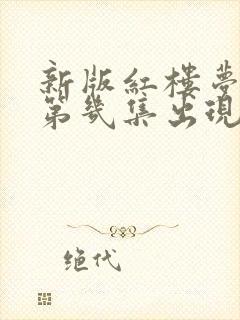 新版紅樓夢
第幾集出現
绝代